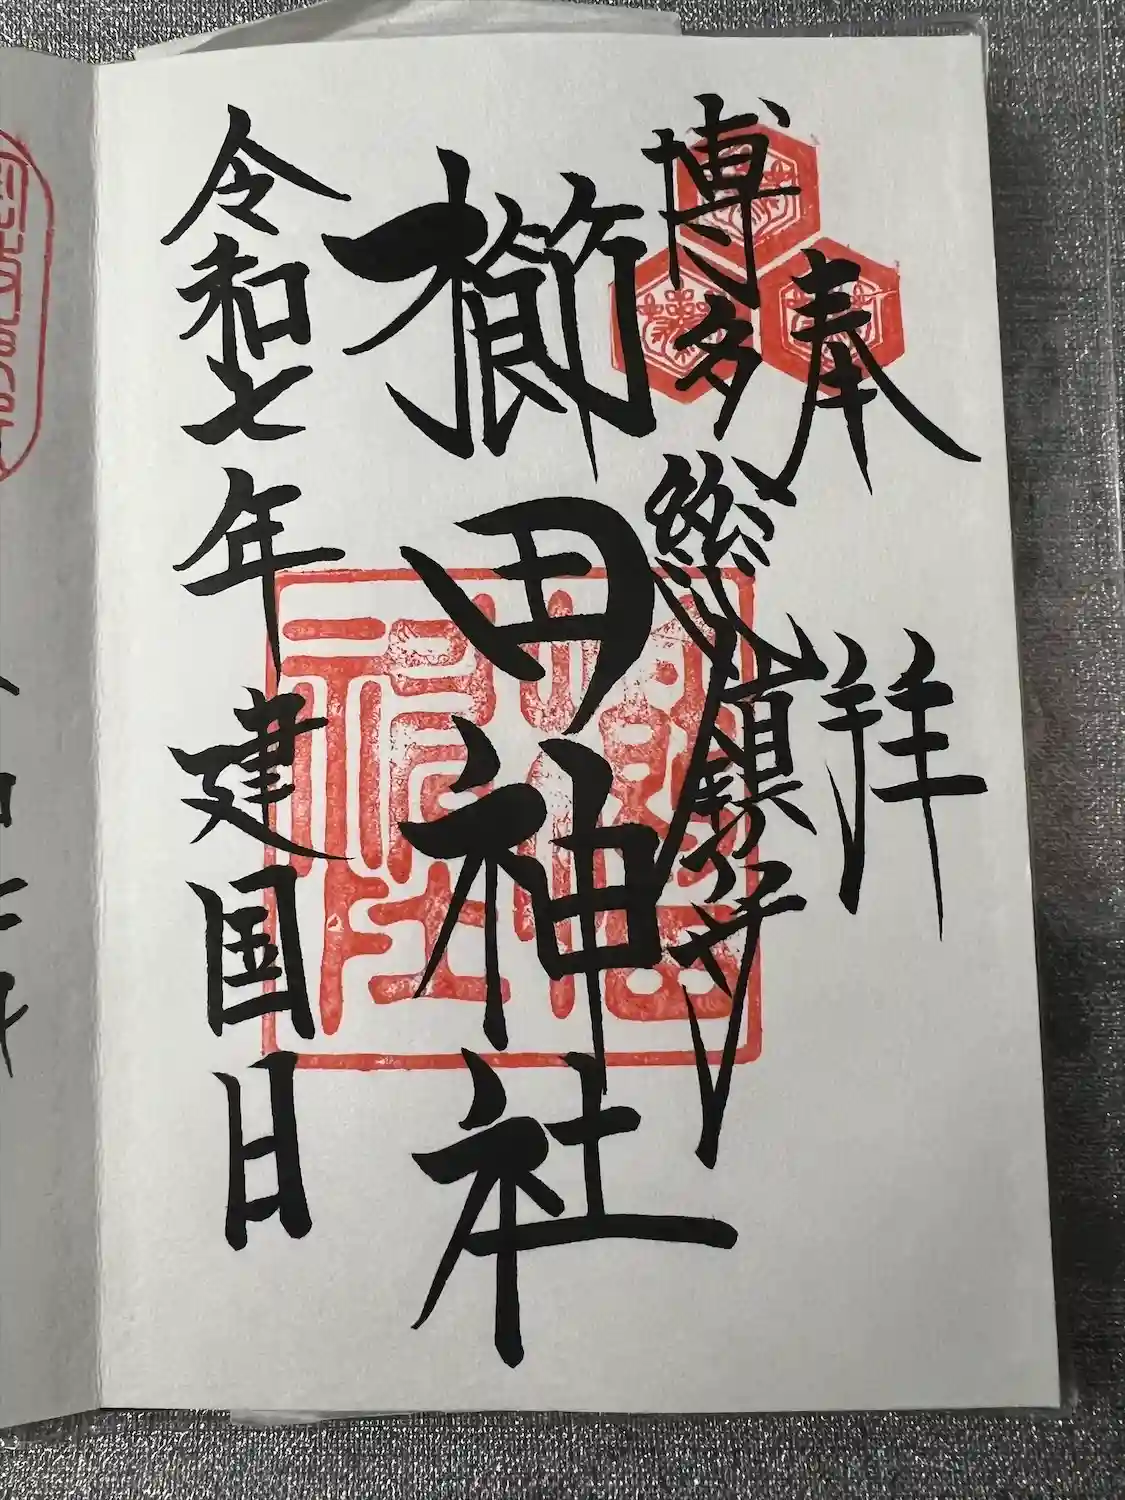 奉拝
博多総鎮守
櫛田神社
令和七年建国日